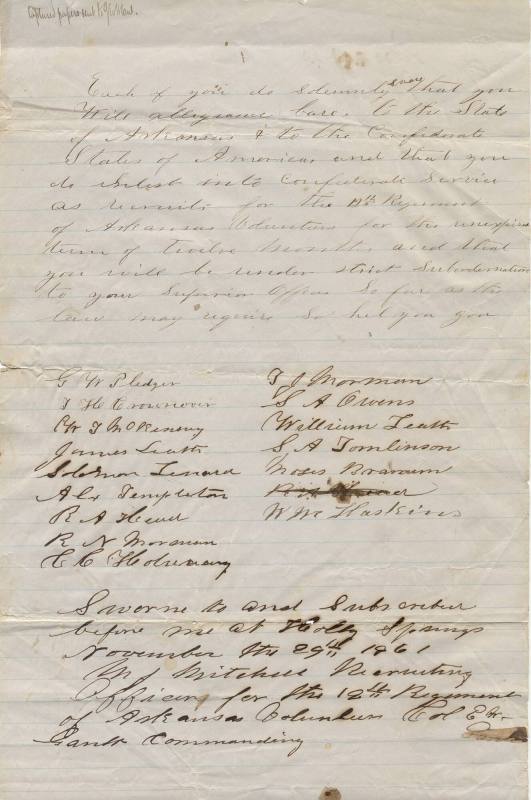 Captured papers sent to
Each of you do solemnly swear that you
Will allegiance bare to the State
of Arkansas & to the Confederate
States of America and that you
do enlist into Confederate Service
as recruits for the 12th Regiment
of Arkansas Volunteers for the unexpired
term of twelve months and that
you will be under strict Subordernation
to your Superior Officers So far as the
law may require So help you god
G W Pledger
J H Crownover
W T McKenney
James Leath
Solomon Lenard
Alx Templeton
R A Head
R N Morman
E C Holaway
T J Morman
S A Owens
William Leath
S A Tomlinson
Moses Branum
W M Haskins
Sworne to and Subscriber
before me at Holly Springs
November the 29th 1861
M J Mitchell Recruiting
Officers for the 12th Regiment
of Arkansas Volunteers Col E W
Gantt Commanding